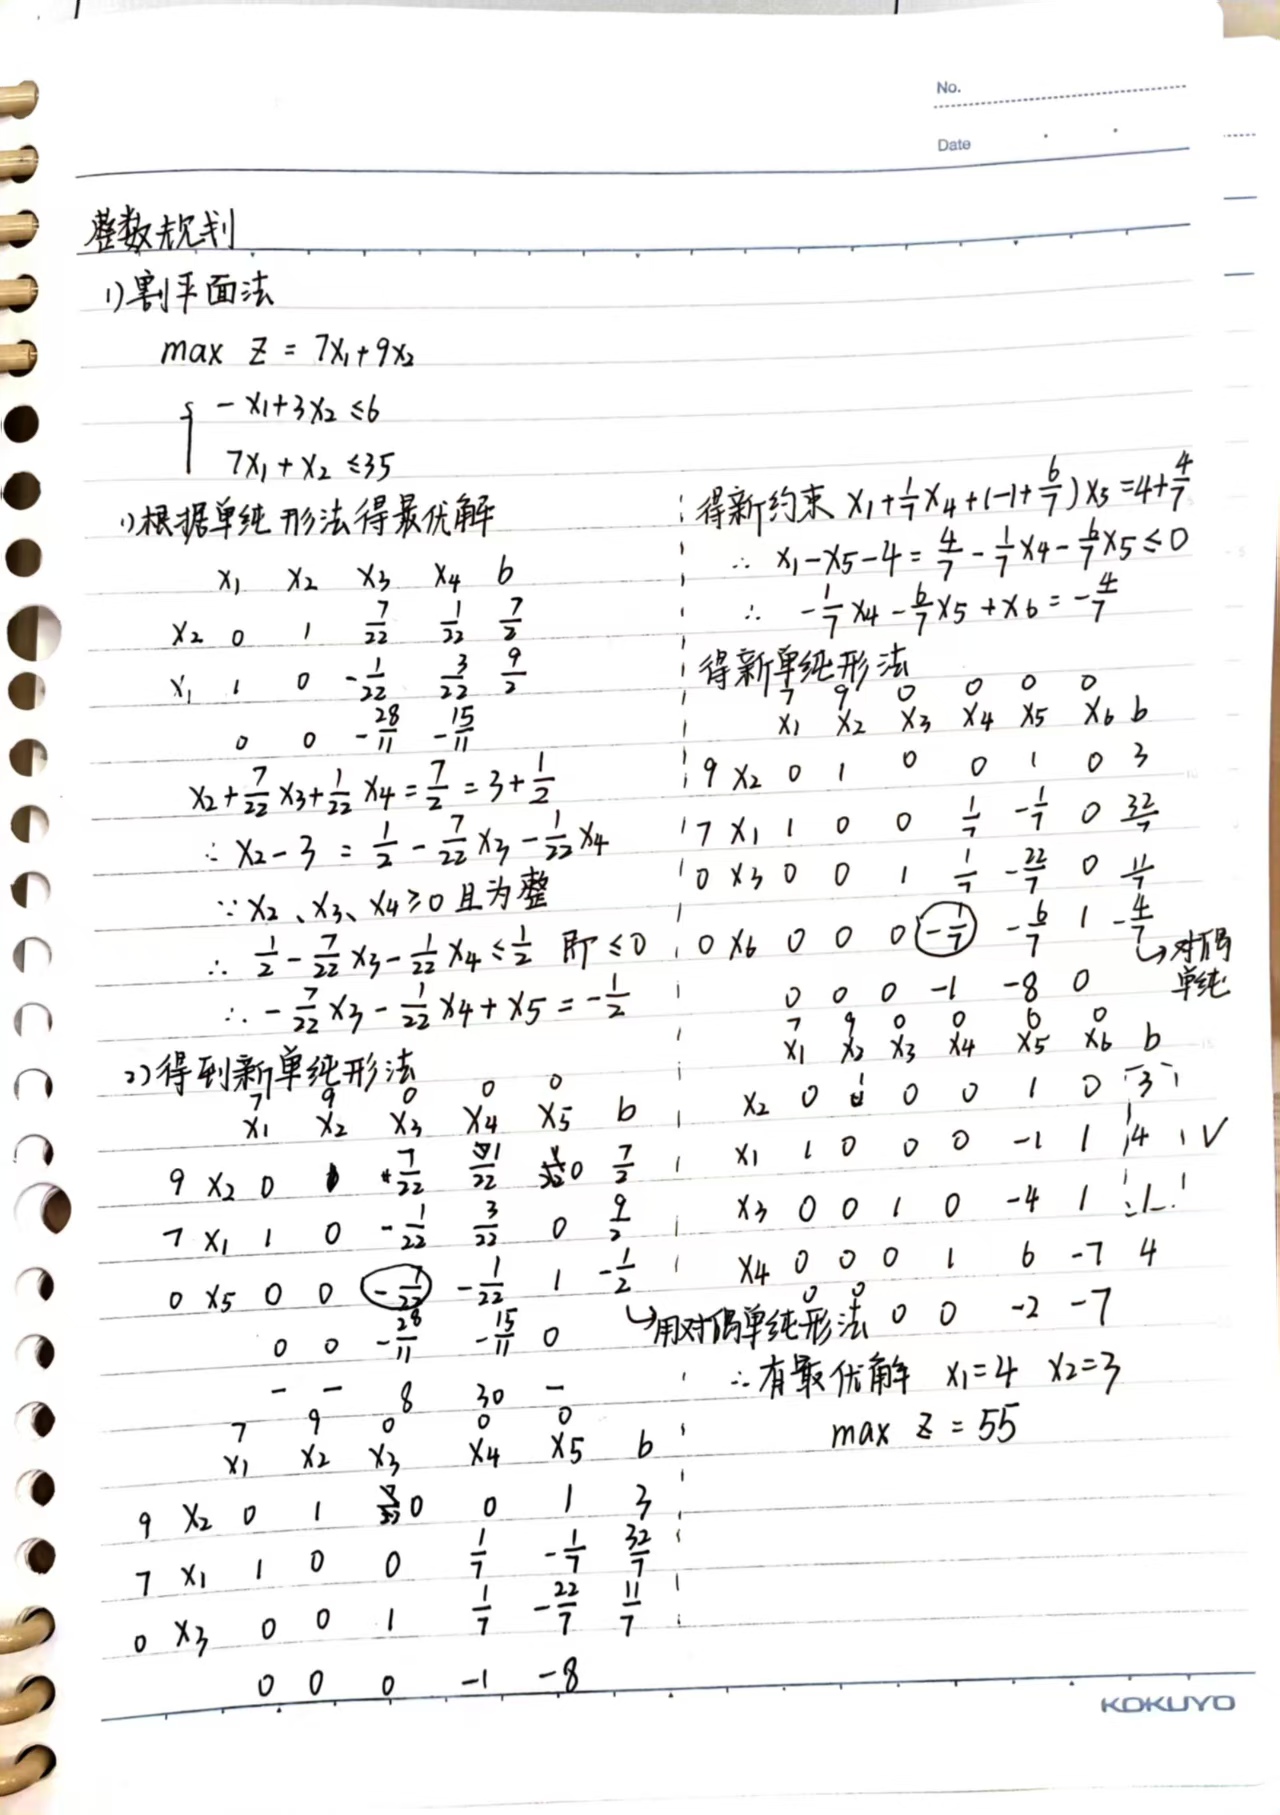 No.
Date
整数规划
1)割平面法
max Z = 7x₁+9x₂
{ -x₁+3x₂≤6
7x₁+x₂≤35
1)根据单纯形法得最优解
x₁ x₂ x₃ x₄ b
x₂ 0 1 7/22 1/22 7/2
x₁ 1 0 -1/22 3/22 9/2
0 0 -28/11 -15/11
x₂+7/22x₃+1/22x₄=7/2=3+1/2
∴x₂-3=1/2-7/22x₃-1/22x₄
∵x₂、x₃、x₄≥0且为整
∴1/2-7/22x₃-1/22x₄≤1/2 即≤0
∴-7/22x₃-1/22x₄+x₅=-1/2
2)得到新单纯形法
7 9 0 0 0
x₁ x₂ x₃ x₄ x₅ b
9 x₂ 0 1 7/22 1/22 0 7/2
7 x₁ 1 0 -1/22 3/22 0 9/2
0 x₅ 0 0 -7/22 -1/22 1 -1/2
↳用对偶单纯形法
0 0 -28/11 -15/11 0
- - 8 30 -
7 9 0 0 0
x₁ x₂ x₃ x₄ x₅ b
9 x₂ 0 1 0 0 1 3
7 x₁ 1 0 0 1/7 -1/7 32/7
0 x₃ 0 0 1 1/7 -22/7 11/7
0 0 0 -1 -8
得新约束 x₁+1/7x₄+(-1+6/7)x₅=4+4/7
∴x₁-x₅-4=4/7-1/7x₄-6/7x₅≤0
∴-1/7x₄-6/7x₅+x₆=-4/7
得新单纯形法
7 9 0 0 0 0
x₁ x₂ x₃ x₄ x₅ x₆ b
9 x₂ 0 1 0 0 1 0 3
7 x₁ 1 0 0 1/7 -1/7 0 32/7
0 x₃ 0 0 1 1/7 -22/7 0 11/7
0 x₆ 0 0 0 -1/7 -6/7 1 -4/7
↳对偶
单纯
0 0 0 -1 -8 0
7 9 0 0 0 0
x₁ x₂ x₃ x₄ x₅ x₆ b
x₂ 0 1 0 0 1 0 3
x₁ 1 0 0 0 -1 1 4 √
x₃ 0 0 1 0 -4 1 1
x₄ 0 0 0 1 6 -7 4
0 0 0 0 -2 -7
∴有最优解 x₁=4 x₂=3
max Z = 55
KOKUYO